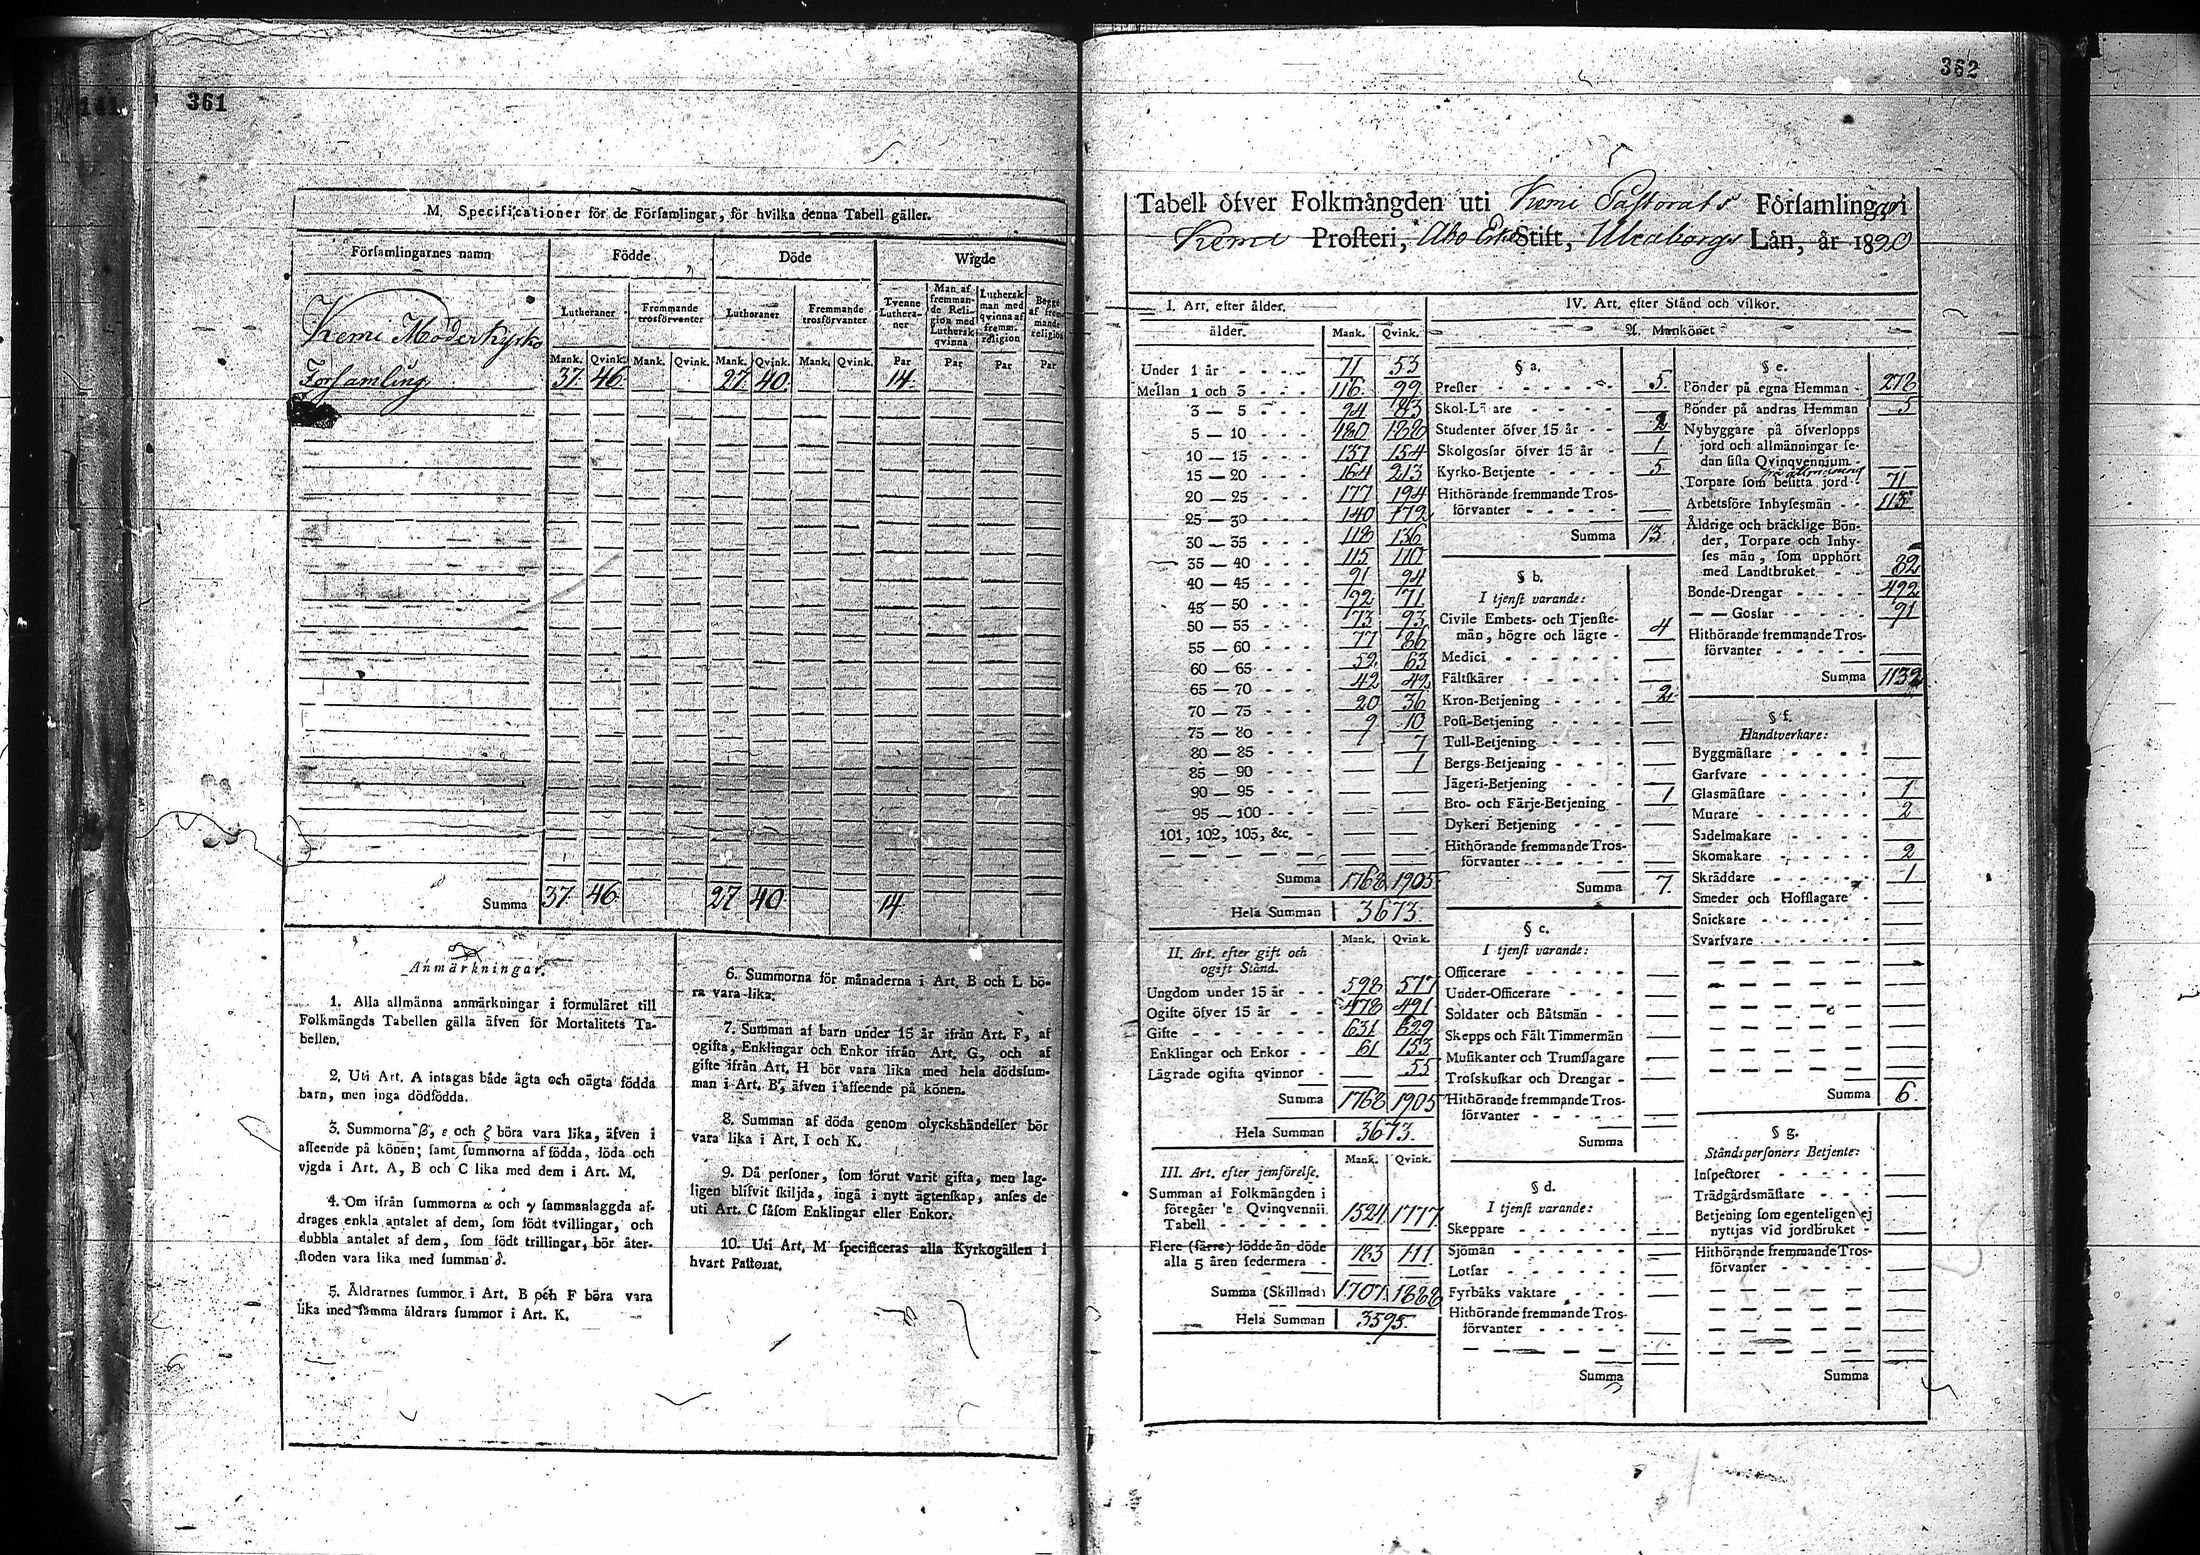 361
M. Specificationer för de Församlingar, för hvilka denna Tabell gäller.
Församlingarnes namn Födde Döde Wigde
Lutheraner Fremmande trosförvanter Lutheraner Fremmande trosförvanter Tvenne Lutheraner Man af fremmande Religion med Luthersk qvinna Luthersk man med qvinna af fremm. religion Begge af fremmande religion
Mank. Qvink. Mank. Qvink. Mank. Qvink. Mank. Qvink. Par Par Par Par
Kemi Moderkyrko
Församling 37 46 27 40 14
Summa 37 46 27 40 14
Anmärkningar.
1. Alla allmänna anmärkningar i formuläret till
Folkmängds Tabellen gälla äfven för Mortalitets Ta-
bellen.
2. Uti Art. A intagas både ägta och oägta födda
barn, men inga dödfödda.
3. Summorna β, ε och ζ böra vara lika, äfven i
afseende på könen; samt summorna af födda, döda och
vigda i Art. A, B och C lika med dem i Art. M.
4. Om ifrån summorna α och γ sammanlaggda af-
drages enkla antalet af dem, som födt tvillingar, och
dubbla antalet af dem, som födt trillingar, bör åter-
stoden vara lika med summan δ.
5. Åldrarnes summor i Art. B och F böra vara
lika med samma åldrars summor i Art. K.
6. Summorna för månaderna i Art. B och L bö-
ra vara lika.
7. Summan af barn under 15 år ifrån Art. F, af
ogifta, Enklingar och Enkor ifrån Art. G, och af
gifte ifrån Art. H bör vara lika med hela dödssum-
man i Art. B, äfven i afseende på könen.
8. Summan af döda genom olyckshändelser bör
vara lika i Art. I och K.
9. Då personer, som förut varit gifta, men lag-
ligen blifvit skiljda, ingå i nytt ägtenskap, anses de
uti Art. C såsom Enklingar eller Enkor.
10. Uti Art. M specificeras alla Kyrkogällen i
hvart Pastorat.
362
Tabell öfver Folkmängden uti Kemi Pastorats Församlingar i
Kemi Prosteri, Åbo Erke Stift, Uleaborgs Län, år 1820
I. Art. efter ålder.
ålder. Mank. Qvink.
Under 1 år 71 53
Mellan 1 och 3 116 99
3 — 5 94 83
5 — 10 180 188
10 — 15 137 154
15 — 20 164 213
20 — 25 177 194
25 — 30 140 172
30 — 35 118 136
35 — 40 115 110
40 — 45 91 94
45 — 50 92 71
50 — 55 73 93
55 — 60 77 86
60 — 65 52 63
65 — 70 42 42
70 — 75 20 36
75 — 80 9 10
80 — 85 7
85 — 90 — 1
90 — 95 — —
95 — 100 — —
101, 102, 103, &c. — —
Summa 1768 1905
Hela Summan 3673
II. Art. efter gift och
ogift Stånd. Mank. Qvink.
Ungdom under 15 år 598 577
Ogifte öfver 15 år 478 491
Gifte 631 629
Enklingar och Enkor 61 153
Lägrade ogifta qvinnor — 55
Summa 1768 1905
Hela Summan 3673.
III. Art. efter jemförelse. Mank. Qvink.
Summan af Folkmängden i
föregående Qvinqvennii
Tabell 1524 1777
Flere (färre) födde än döde
alla 5 åren sedermera 183 111
Summa (Skillnad) 1707 1888
Hela Summan 3595.
IV. Art. efter Stånd och vilkor.
A. Mankönet
§ a.
Prester 5.
Skol-Lärare —
Studenter öfver 15 år 2
Skolgossar öfver 15 år 1
Kyrko-Betjente 5
Hithörande fremmande Tros-
förvanter —
Summa 13.
§ b.
I tjenst varande:
Civile Embets- och Tjenste-
män, högre och lägre 4
Medici —
Fältskärer —
Kron-Betjening 2
Post-Betjening —
Tull-Betjening —
Bergs-Betjening —
Jägeri-Betjening —
Bro- och Färje-Betjening 1
Dykeri Betjening —
Hithörande fremmande Tros-
förvanter —
Summa 7.
§ c.
I tjenst varande:
Officerare —
Under-Officerare —
Soldater och Båtsmän —
Skepps och Fält Timmermän —
Musikanter och Trumslagare —
Trosskuskar och Drengar —
Hithörande fremmande Tros-
förvanter —
Summa
§ d.
I tjenst varande:
Skeppare —
Sjömän —
Lotsar —
Fyrbåks vaktare —
Hithörande fremmande Tros-
förvanter —
Summa
§ e.
Bönder på egna Hemman 278
Bönder på andras Hemman 5
Nybyggare på öfverlopps
jord och allmänningar se-
dan sista Qvinqvennium —
Torpare som besitta jord 71
Arbetsföre Inhysesmän 113
Åldrige och bräcklige Bön-
der, Torpare och Inhy-
ses män, som upphört
med Landtbruket 82
Bonde-Drengar 492
— — Gossar 91
Hithörande fremmande Tros-
förvanter —
Summa 1132
§ f.
Handtverkare:
Byggmästare —
Garfvare —
Glasmästare 1
Murare 2
Sadelmakare —
Skomakare 2
Skräddare 1
Smeder och Hofslagare —
Snickare —
Svarfvare —
Summa 6.
§ g.
Ståndspersoners Betjente:
Inspectorer —
Trädgårdsmästare —
Betjening som egenteligen ej
nyttjas vid jordbruket —
Hithörande fremmande Tros-
förvanter —
Summa